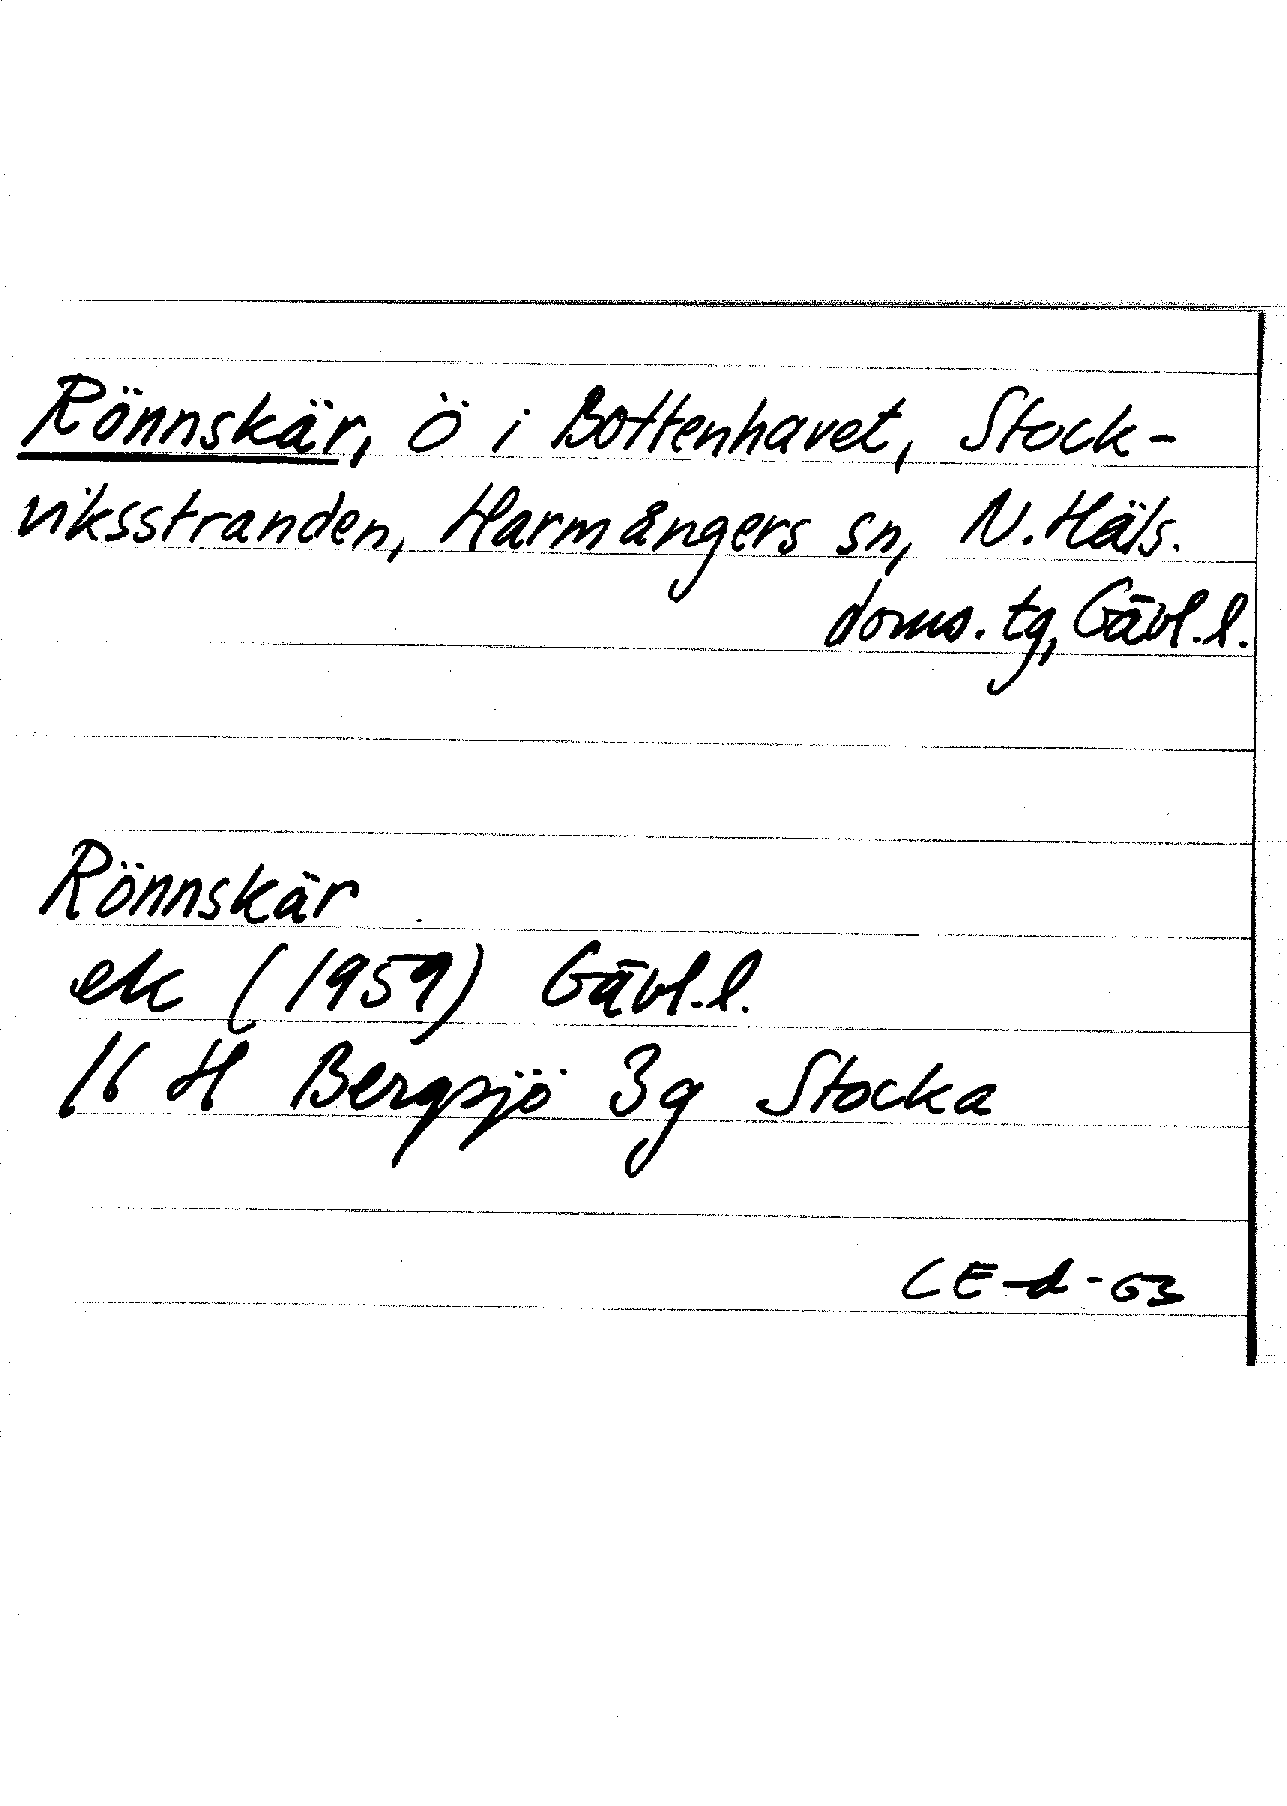 Rönnskär, ö i Bottenhavet, Stock-
viksstranden, Harmångers sn, N. Häls.
doms. tg, Gävl. l.
Rönnskär
ek (1959) Gävl. l.
16 H Bergsjö 3g Stocka
CE-d-63